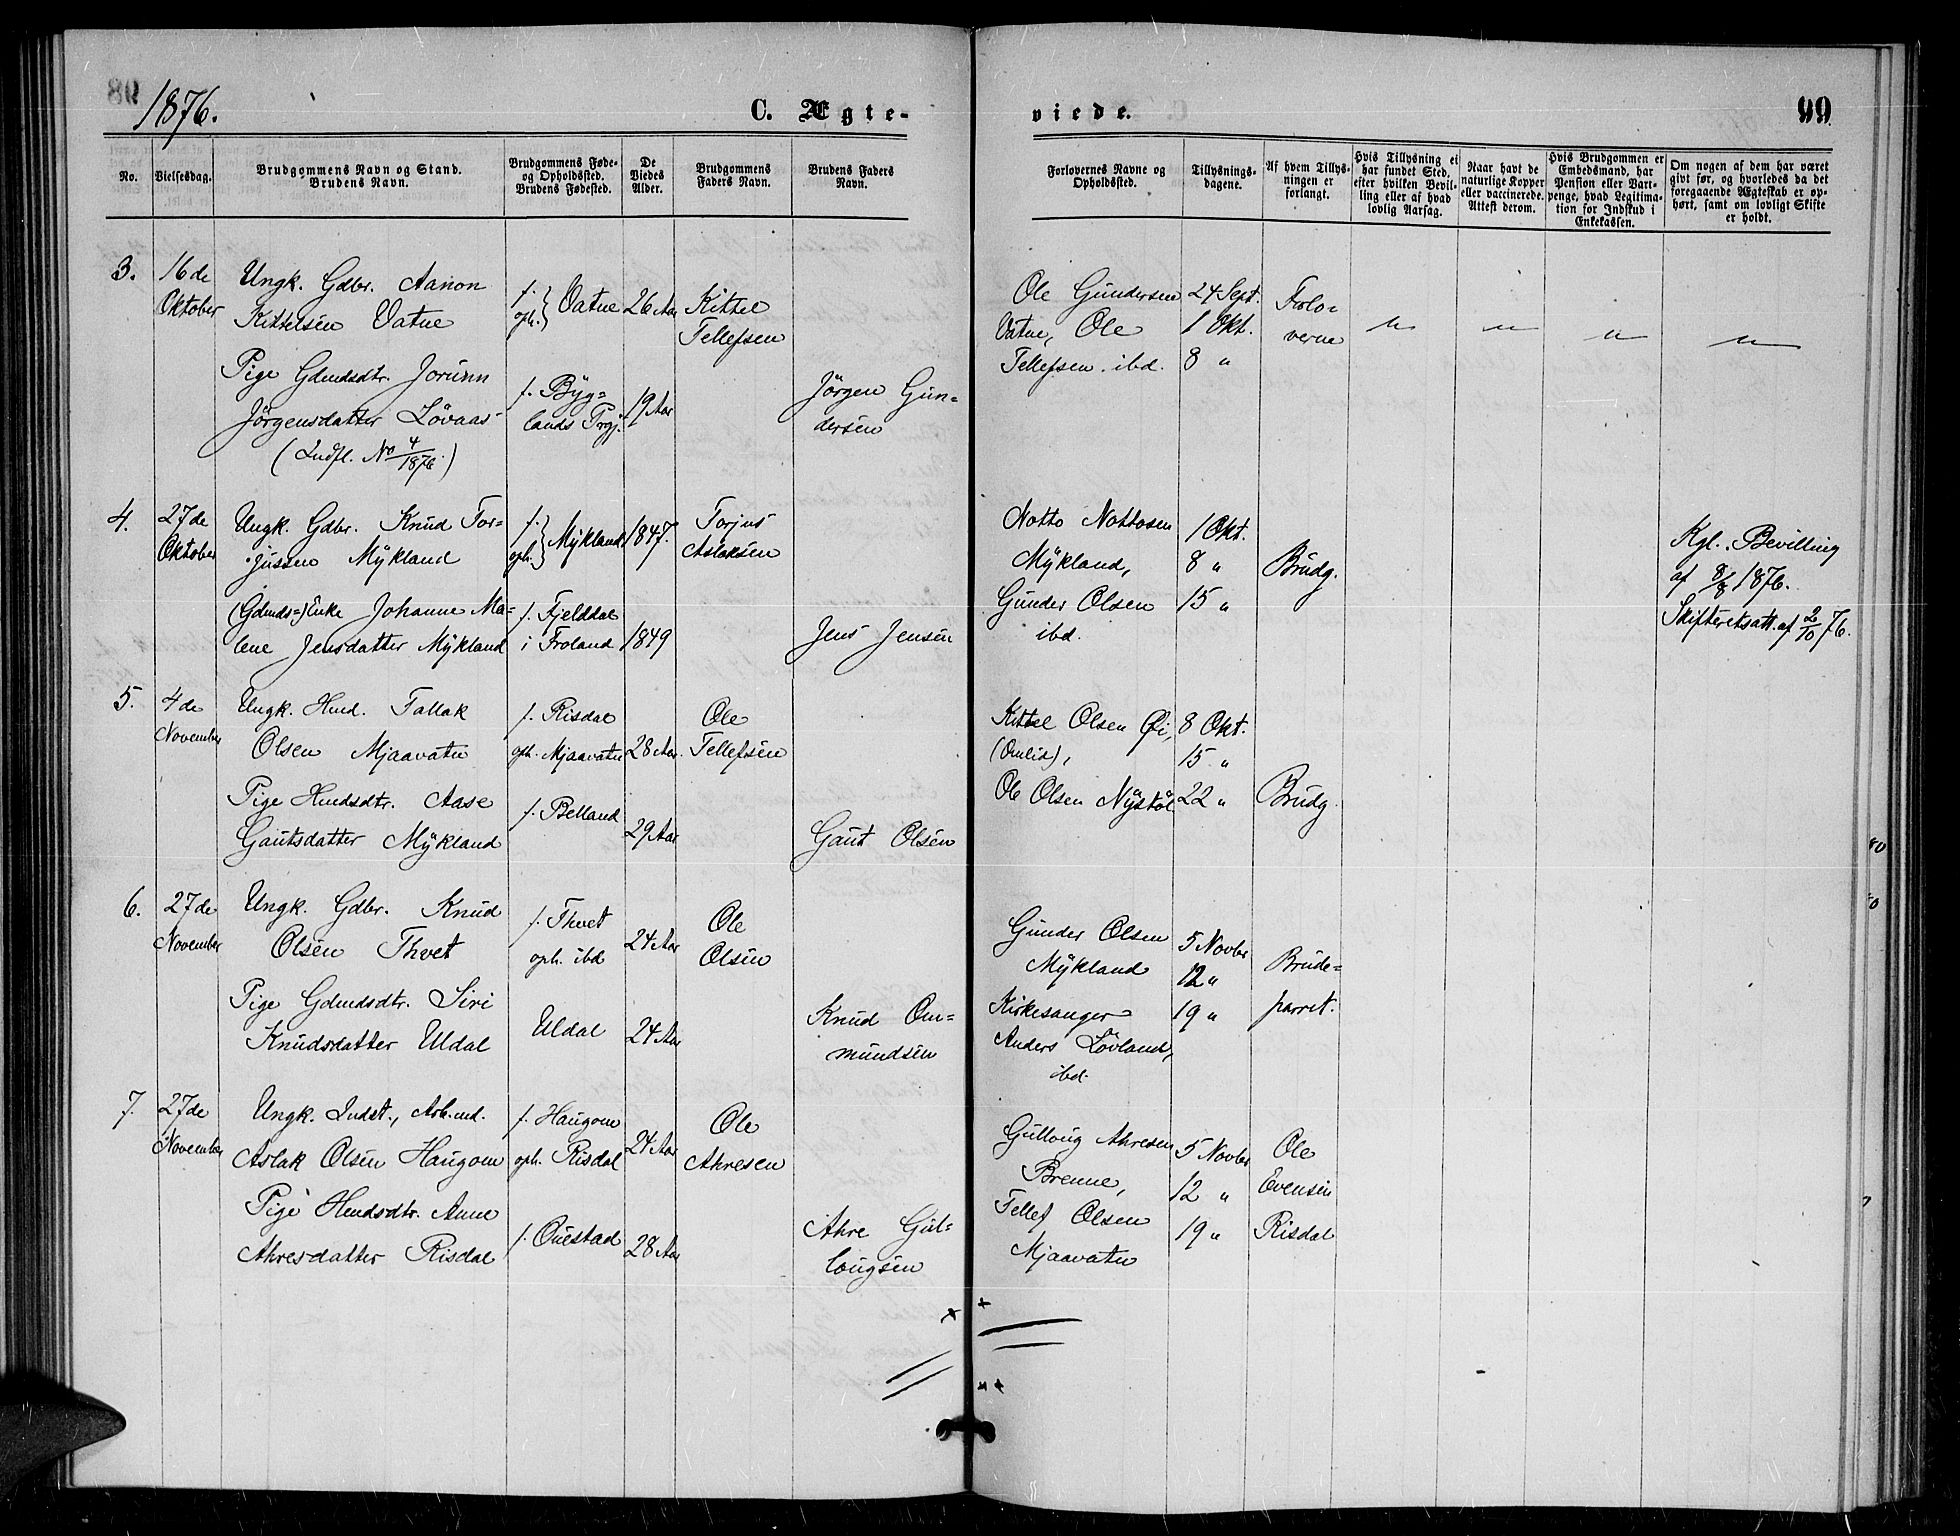 1876.
C. Ægte-
viede.
99
No.
Vielsesdag.
Brudgommens Navn og Stand.
Brudens Navn.
Brudgommens Føde-
og Opholdssted.
Brudens Fødested.
De
Viedes
Alder.
Brudgommens
Faders Navn.
Brudens Faders
Navn.
Forlovernes Navne og
Opholdssted.
Tillysnings-
dagene.
Af hvem Tillys-
ningen er
forlangt.
Hvis Tillysning ei
har fundet Sted,
efter hvilken Bevil-
ling eller af hvad
lovlig Aarsag.
Naar havt de
naturlige Kopper
eller vaccinerede.
Attest derom.
Hvis Brudgommen er
Embedsmand, har
Pension eller Vart-
penge, hvad Legitima-
tion for Indskud i
Enkekassen.
Om nogen af dem har været
gift før, og hvorledes da det
foregaaende Ægteskab er op-
hørt, samt om lovligt Skifte
er holdt.
3.
16de
Oktober
Ungk. Gdbr. Aanon
Kittelsen Vatne
f.
oph. } Vatne
26 Aar
Kittel
Tellefsen
Pige Gdmdsdtr. Jorunn
Jörgensdatter Lövaas
(Indfl. No 4/1876.)
f. Byg=
lands Prgj.
19 Aar
Jörgen Gun-
dersen
Ole Gundersen
Vatne, Ole
Tellefsen ibd.
24 Sept.
1 Okt.
8 "
Forlo-
verne
" " " "
4.
27de
Oktober
Ungk. Gdbr. Knud Tor=
jussen Mykland
f.
oph. } Mykland
1847.
Torjus
Aslaksen
(Gdmds=) Enke Johanne Ma=
lene Jensdatter Mykland
f. Fjelddal
i Froland
1849
Jens Jensen
Notto Nottosen
Mykland,
Gunder Olsen
ibd.
1 Okt.
8 "
15 "
Brudg.
Kgl. Bevilling
af 8/8 1876.
Skifteretsatt. af 2/10 76.
5.
4de
November
Ungk. Hmd. Tallak
Olsen Mjaavatn
f. Risdal
oph. Mjaavatn
28 Aar.
Ole
Tellefsen
Pige Hmdsdtr. Aase
Gautsdatter Mykland
f. Belland
29 Aar
Gaut Olsen
Kittel Olsen Øi,
(Omlid),
Ole Olsen Nystøl
8 Okt.
15 "
22 "
Brudg.
6.
27de
November
Ungk. Gdbr. Knud
Olsen Thvet
f. Thvet
oph. ibd
24 Aar
Ole
Olsen
Pige Gdmdsdtr. Siri
Knudsdatter Uldal
Uldal
24 Aar
Knud Om=
mundsen
Gunder Olsen
Mykland
Kirkesanger
Anders Lövland,
ibd.
5 Novbr
12 "
19 "
Brude=
parret.
7.
27de
November
Ungk. Indst., Arb.md.
Aslak Olsen Haugom
f. Haugom
oph. Risdal
24 Aar
Ole
Ahresen
Pige Hmdsdtr. Anne
Ahresdatter Risdal
f. Ouestad
28 Aar
Ahre Gul-
lougsen
Gulloug Ahresen
Brenne,
Tellef Olsen
Mjaavatn
5 Novbr
12 "
19 "
Ole
Evensen
Risdal